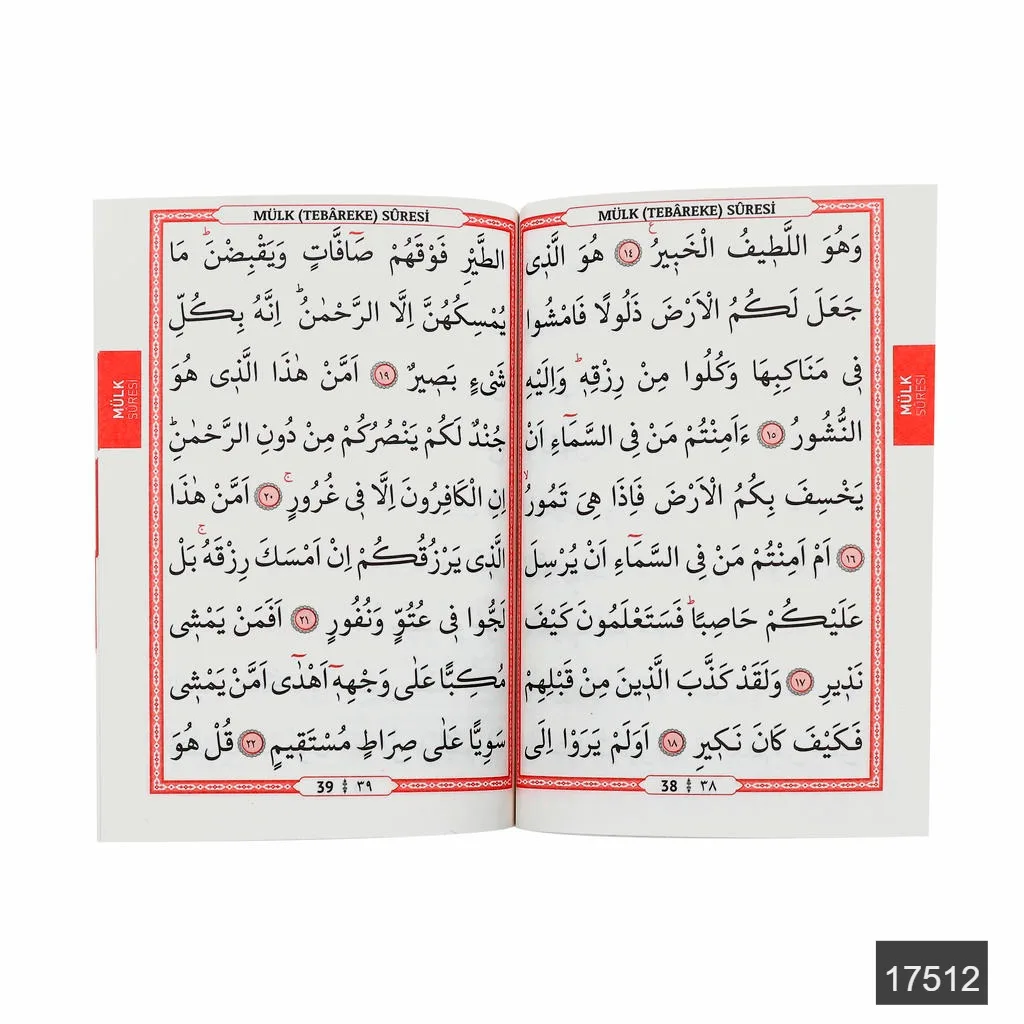 MÜLK (TEBÂREKE) SÛRESİ
وَهُوَ اللَّط۪يفُ الْخَب۪يرُ ۟ ﴿١٤﴾ هُوَ الَّذ۪ي
جَعَلَ لَكُمُ الْاَرْضَ ذَلُولًا فَامْشُوا
ف۪ي مَنَاكِبِهَا وَكُلُوا مِنْ رِزْقِه۪ۜ وَاِلَيْهِ
النُّشُورُ ﴿١٥﴾ ءَاَمِنْتُمْ مَنْ فِي السَّمَٓاءِ اَنْ
يَخْسِفَ بِكُمُ الْاَرْضَ فَاِذَا هِيَ تَمُورُۙ
﴿١٦﴾ اَمْ اَمِنْتُمْ مَنْ فِي السَّمَٓاءِ اَنْ يُرْسِلَ
عَلَيْكُمْ حَاصِبًاۜ فَسَتَعْلَمُونَ كَيْفَ
نَذ۪يرِ ﴿١٧﴾ وَلَقَدْ كَذَّبَ الَّذ۪ينَ مِنْ قَبْلِهِمْ
فَكَيْفَ كَانَ نَك۪يرِ ﴿١٨﴾ اَوَلَمْ يَرَوْا اِلَى
38 ٣٨
MÜLK SÛRESİ
MÜLK (TEBÂREKE) SÛRESİ
الطَّيْرِ فَوْقَهُمْ صَٓافَّاتٍ وَيَقْبِضْنَۜ مَا
يُمْسِكُهُنَّ اِلَّا الرَّحْمٰنُۜ اِنَّهُ بِكُلِّ
شَيْءٍ بَص۪يرٌ ﴿١٩﴾ اَمَّنْ هٰذَا الَّذ۪ي هُوَ
جُنْدٌ لَكُمْ يَنْصُرُكُمْ مِنْ دُونِ الرَّحْمٰنِۜ
اِنِ الْكَافِرُونَ اِلَّا ف۪ي غُرُورٍۚ ﴿٢٠﴾ اَمَّنْ هٰذَا
الَّذ۪ي يَرْزُقُكُمْ اِنْ اَمْسَكَ رِزْقَهُۚ بَلْ
لَجُّوا ف۪ي عُتُوٍّ وَنُفُورٍ ﴿٢١﴾ اَفَمَنْ يَمْش۪ي
مُكِبًّا عَلٰى وَجْهِه۪ٓ اَهْدٰٓى اَمَّنْ يَمْش۪ي
سَوِيًّا عَلٰى صِرَاطٍ مُسْتَق۪يمٍ ﴿٢٢﴾ قُلْ هُوَ
39 ٣٩
MÜLK SÛRESİ
17512